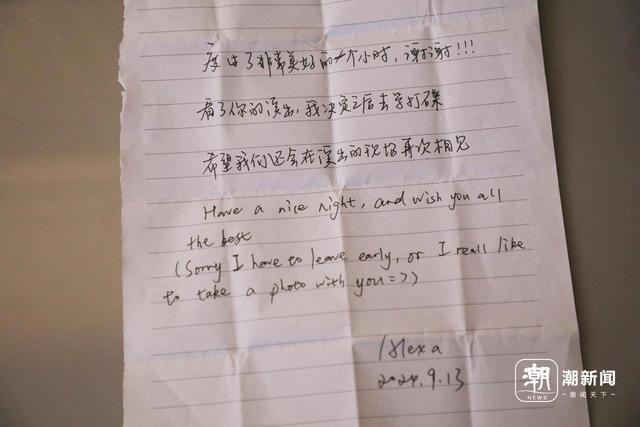 度过了非常美好的一个小时，谢谢!!!
看了你的演出，我决定之后去学打碟
希望我们还会在演出的现场再次相见
Have a nice night, and wish you all
the best
(Sorry I have to leave early, or I reall like
to take a photo with you=>)
Alexa
2024.9.13
潮
NEWS
潮新闻
潮闻天下